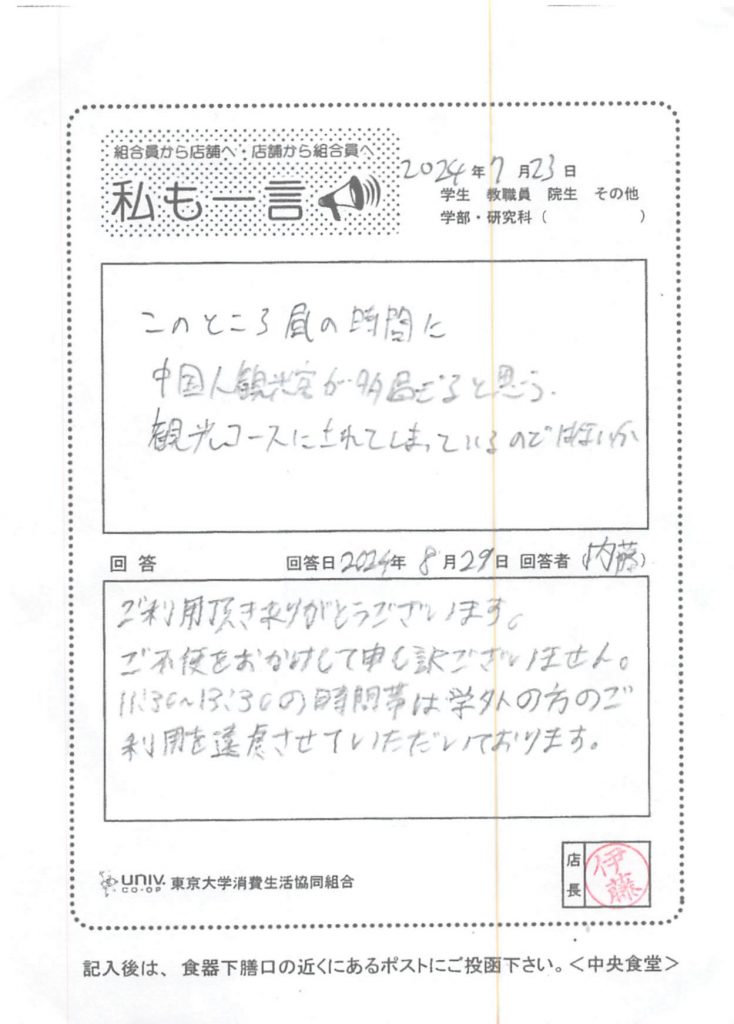 組合員から店舗へ・店舗から組合員へ
私も一言
2024年7月23日
学生 教職員 院生 その他
学部・研究科( )
このところ昼の時間に
中国人観光客が多過ぎると思う.
観光コースにされてしまっているのではないか
回答 回答日2024年8月29日 回答者(内藤)
ご利用頂きありがとうございます。
ご不便をおかけして申し訳ございません。
11:30~13:30の時間帯は学外の方のご
利用を遠慮させていただいております。
UNIV.
CO-OP
東京大学消費生活協同組合
店長
伊藤
記入後は、食器下膳口の近くにあるポストにご投函下さい。<中央食堂>